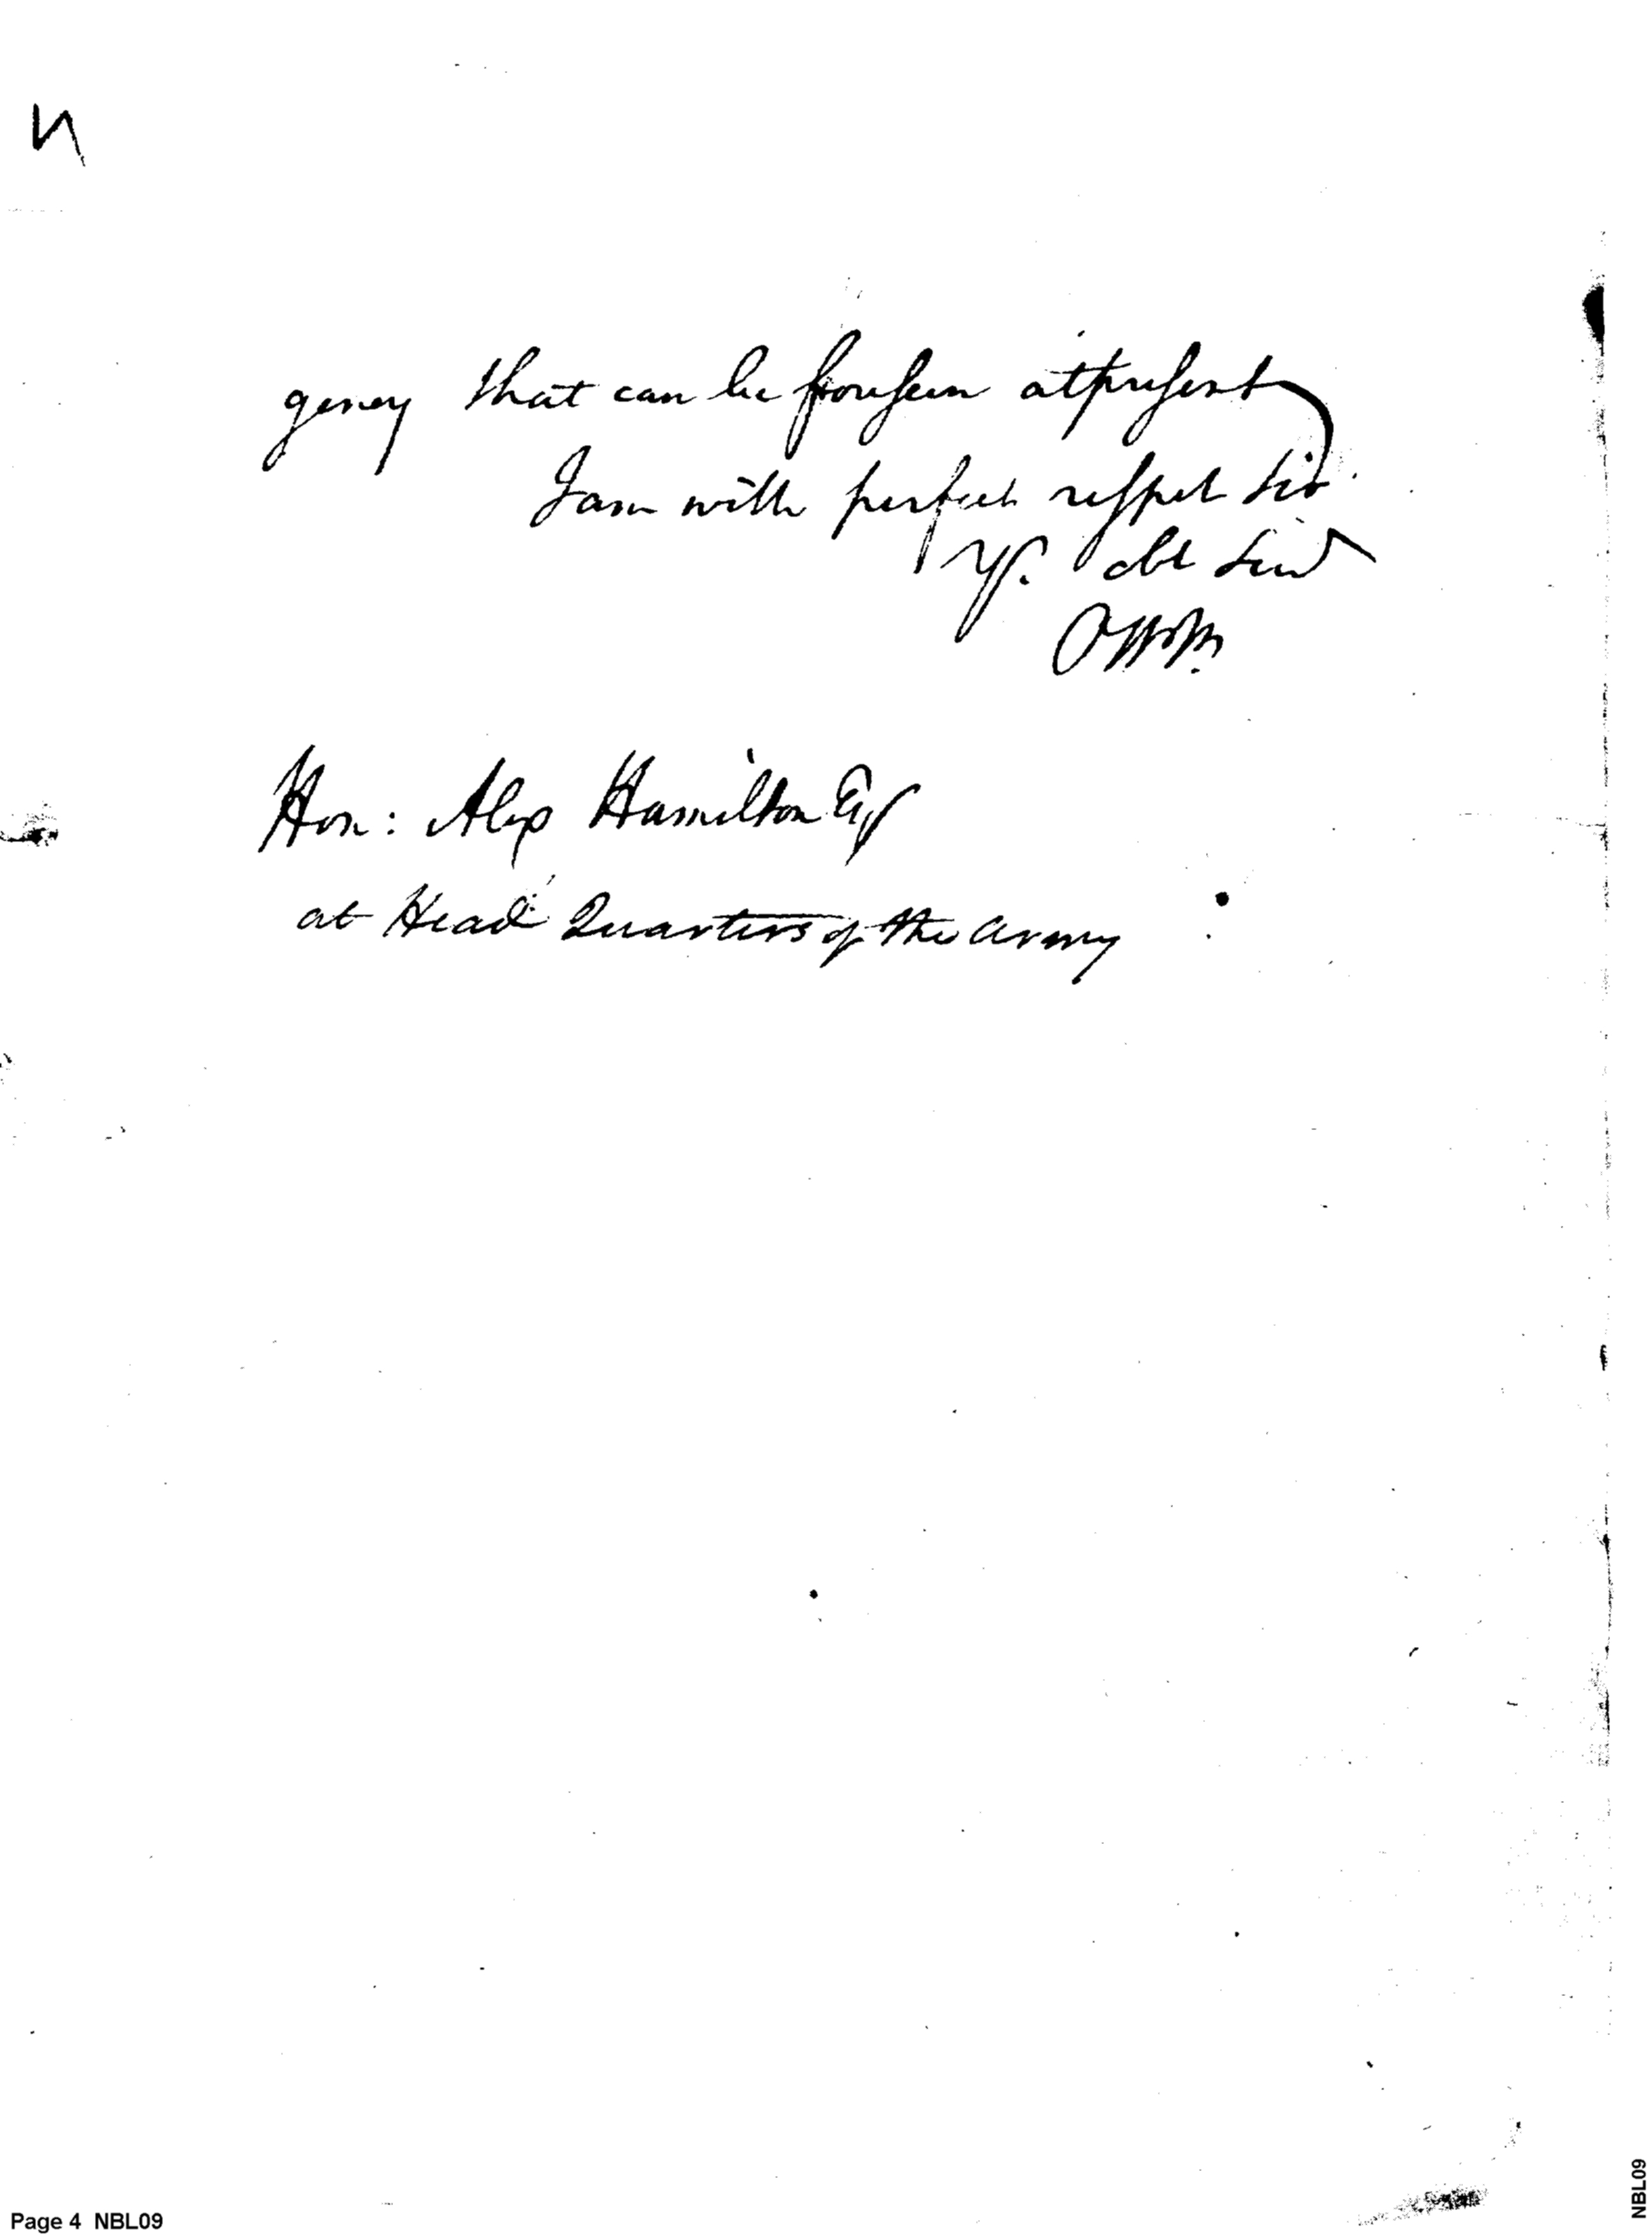 gency that can be foreseen at present
I am with perfect respect Sir
Yr. obt Servt
O W Jr.
Hon: Alex Hamilton Esq
at Head Quarters of the army
Page 4 NBL09
NBL09